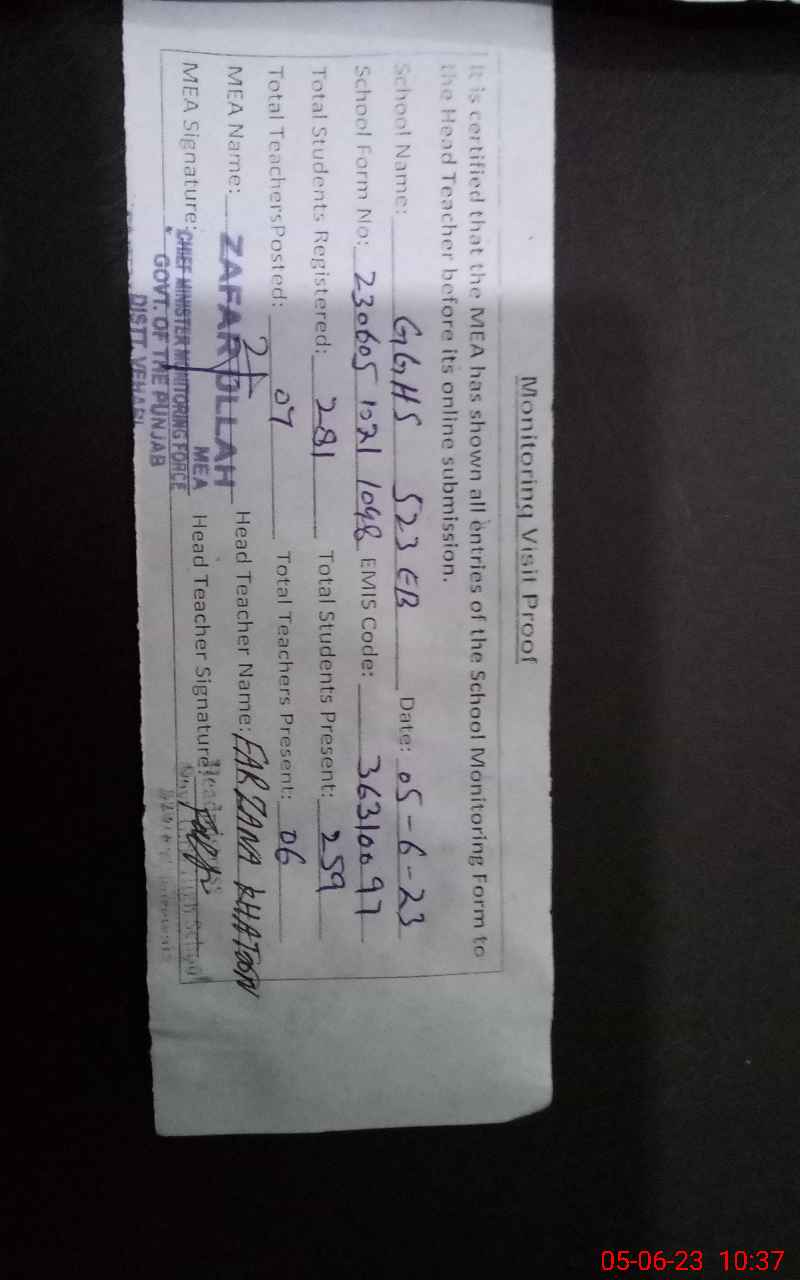 Monitoring Visit Proof
It is certified that the MEA has shown all entries of the School Monitoring Form to
the Head Teacher before its online submission.
School Name: GGHS 523 EB Date: 05-6-23
School Form No: 230605 1021 1098 EMIS Code: 36310097
Total Students Registered: 281 Total Students Present: 259
Total TeachersPosted: 07 Total Teachers Present: 06
MEA Name: ZAFAR ULLAH Head Teacher Name: FARZANA KHATOON
MEA
MEA Signature: Head Teacher Signature:
CHIEF MINISTER MONITORING FORCE
GOVT. OF THE PUNJAB
DISTT. VEHARI
05-06-23 10:37